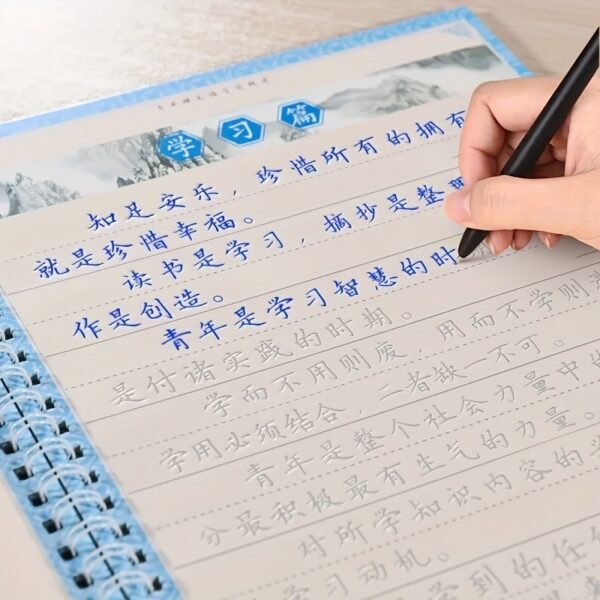 学习篇
知足安乐，珍惜所有的拥有
就是珍惜幸福。
读书是学习，摘抄是整
作是创造。
青年是学习智慧的时
是付诸实践的时期。
学而不用则废，用而不学则
学用必须结合，二者缺一不可。
青年是整个社会力量中的
分最积极最有生气的力量。
对所学知识内容的
学习动机。
学到的任